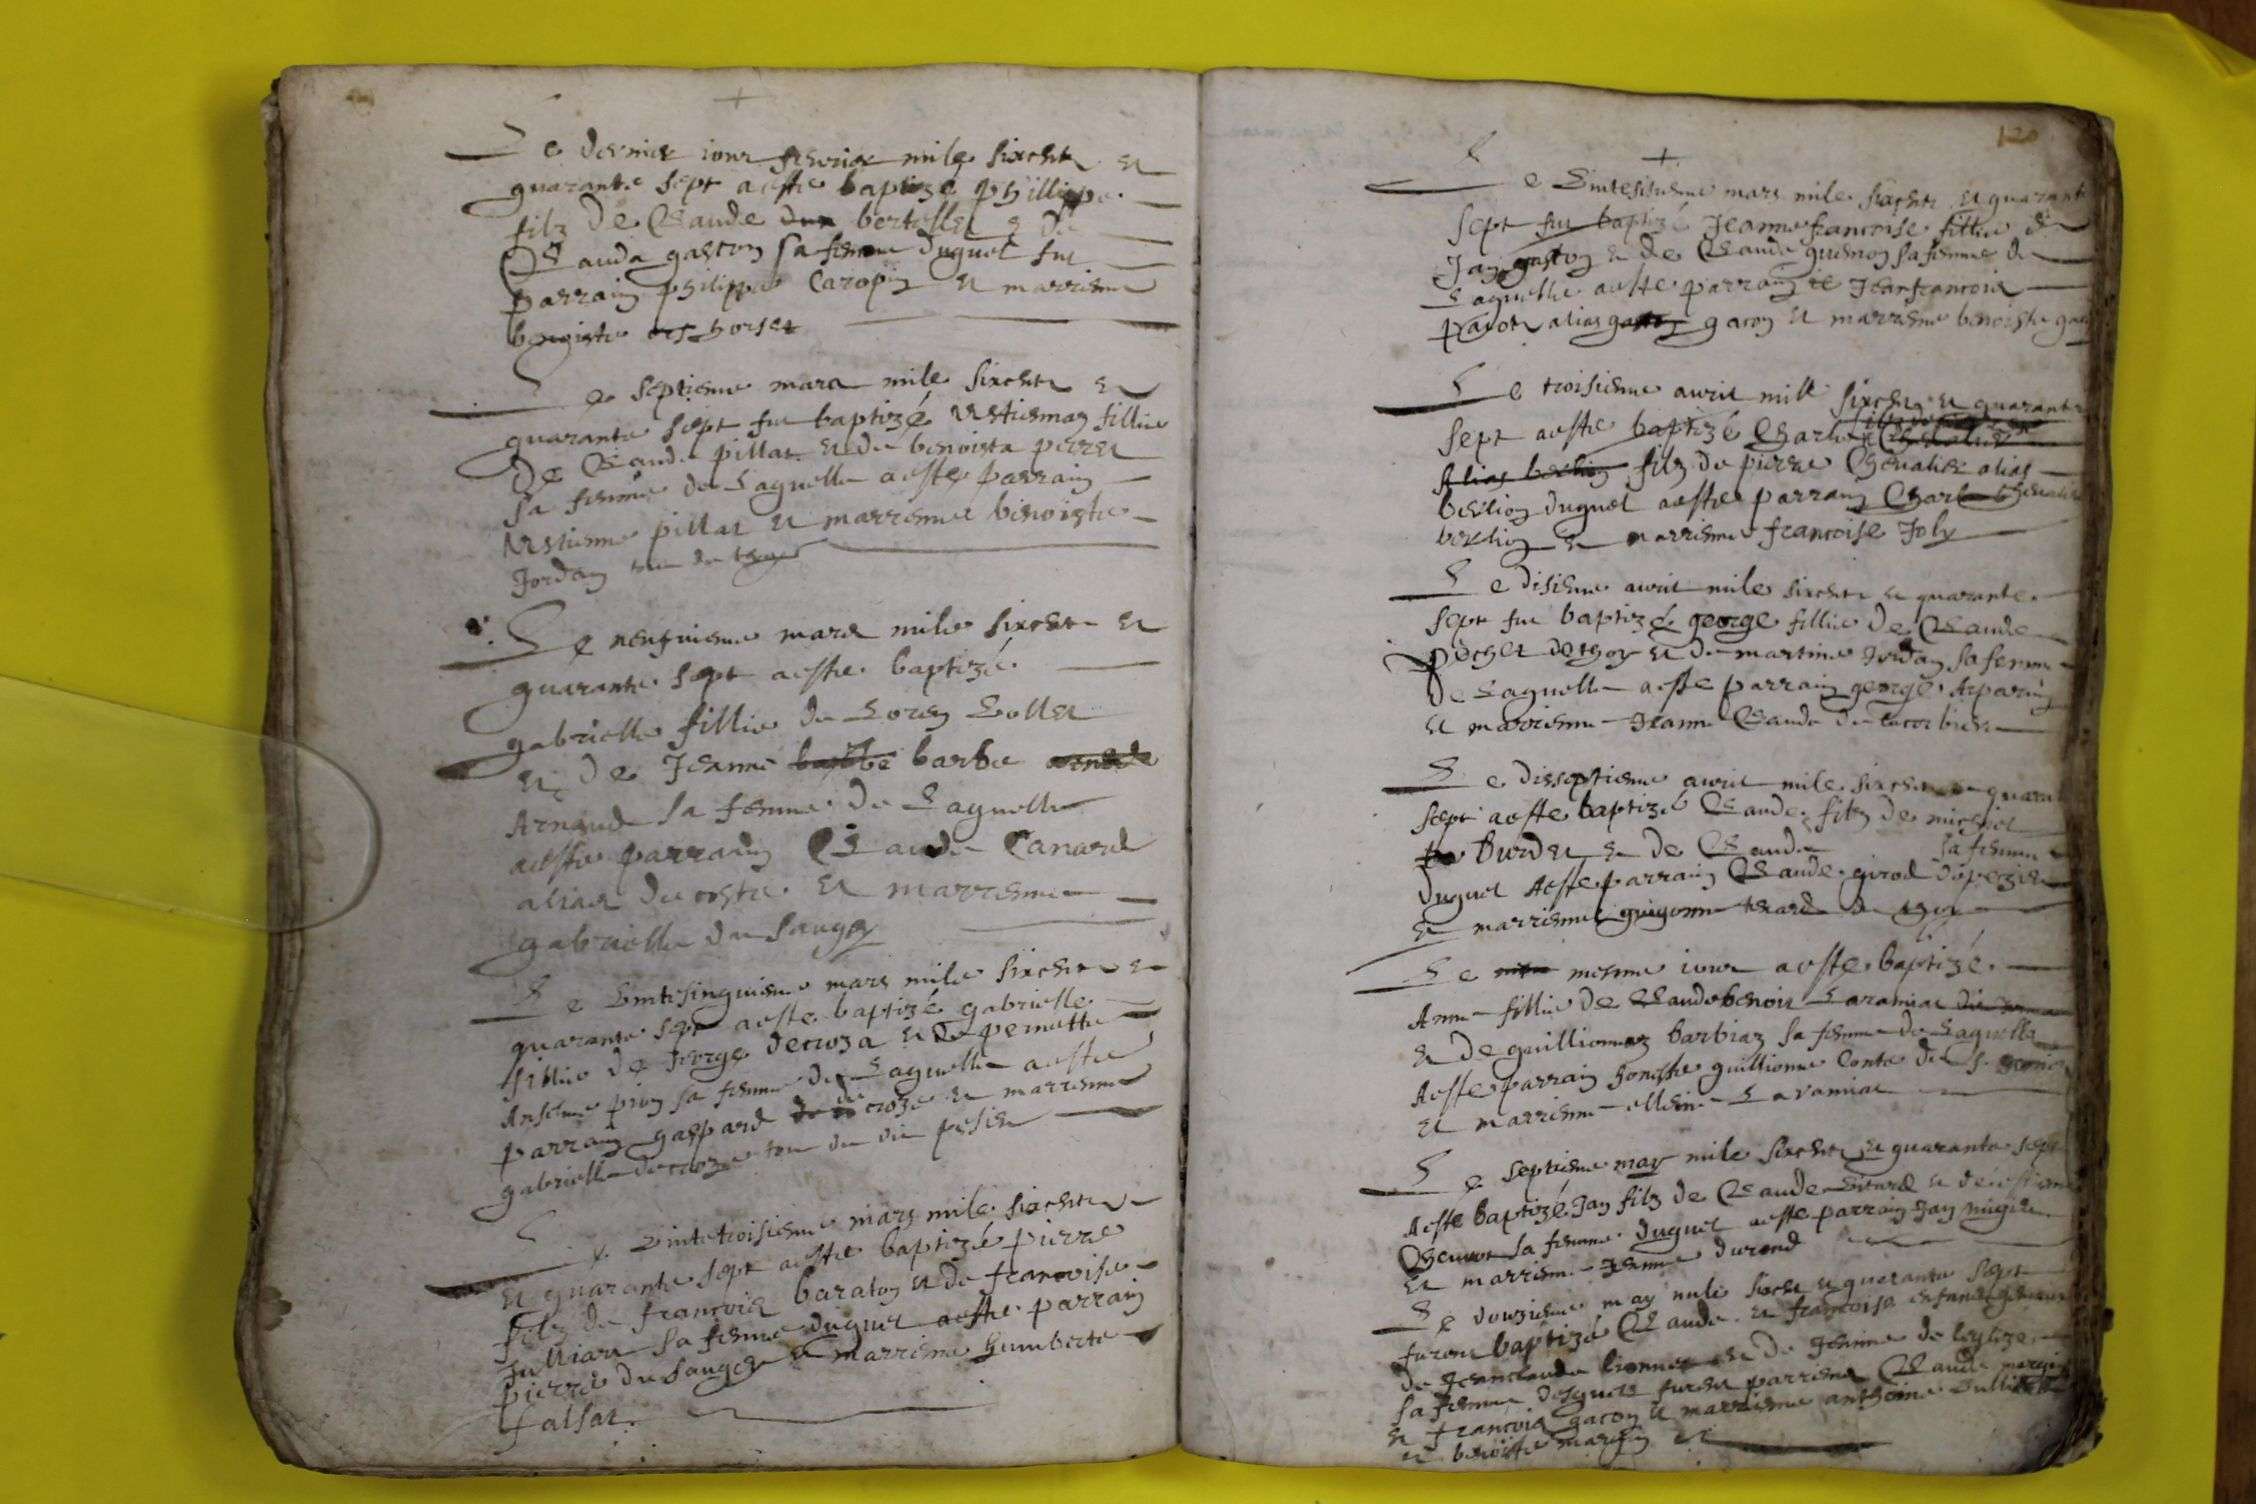 Le dernier iour febvrier mile sixcentz et
quarante sept a esté baptizé phillippe
filz de Claude bertellet e de
Clauda gascon sa femme duquel fut
parrain philippe Caropin et marrienne
benoiste horset
Le septieme mars mile sixcentz et
quarante sept fut baptizé estiennaz fillie
de Claude pillat et de benoista perret
sa femme de laquelle a esté parrain
estienne pillat et marrienne benoiste
Jordan tous de
Le neufvieme mars mile sixcentz et
quarante sept a esté baptizé
gabrielle fillie de Loren Lollet
et de Jeanne barbe
Arnaud sa femme de laquelle
a esté parrain Claude Canard
alias du coste et marrienne
gabrielle du saugey
Le vintesinquieme mars mile sixcentz et
quarante sept a esté baptizé gabrielle
fillie de george decroza et de pernette
Anselme prion sa femme de laquelle a esté
parrain gaspard de croze et marrienne
gabrielle decroze tous du dit pesieu
Le vintetroisieme mars mile sixcentz
et quarante sept a esté baptizé pierre
filz de francois baraton et de francoise
Julliard sa femme duquel a esté parrain
pierre du sauger et marrienne humberte
falsat
120
Le vintesisieme mars mile sixcentz et quarante
sept fut baptizé Jeannefrancoise fillie de
Jan gaston et de Claude quenon sa femme de
laquelle a esté parrain Jeanfrancois
alias gacon et marrienne benoiste
Le troisieme avril mille sixcentz et quarante
sept a esté baptizé Charles
Alias berlion filz de pierre Chevalier alias
berlion duquel a esté parrain Charles Chevalier
berlion et marrienne francoise Joly
Le disieme avril mile sixcentz et quarante
sept fut baptizé george fillie de Claude
pochet de thoy et de martine Jordan sa femme
de laquelle a esté parrain george Aparin
et marrienne Jeanne Claude de
Le disseptieme avril mile sixcentz quarante
sept a esté baptizé Claude filz de michel
burdet et de Claude sa femme
duquel a esté parrain Claude girod
et marrienne guigonne tenard de thoy
Le mesme iour a esté baptizé
Anne fillie de Claudebenoit Laramiat
et de guillionnaz barbiaz sa femme de laquelle
a esté parrain honeste guillionne Conte de S.
et marrienne ellene Laramiat
Le septieme may mile sixcentz et quarante sept
a esté baptizé Jan filz de Claude et de
sa femme duquel a esté parrain Jan
et marrienne Jenne durand
Le douzieme may mile sixcent et quarante sept
furent baptizé Claude et francoise enfans
de Jeanclaude lionnet et de Jenine de leglize
sa femme desquelz furent parriens Claude margin
et francois gacon et marrienne anthoine
et benoiste margin